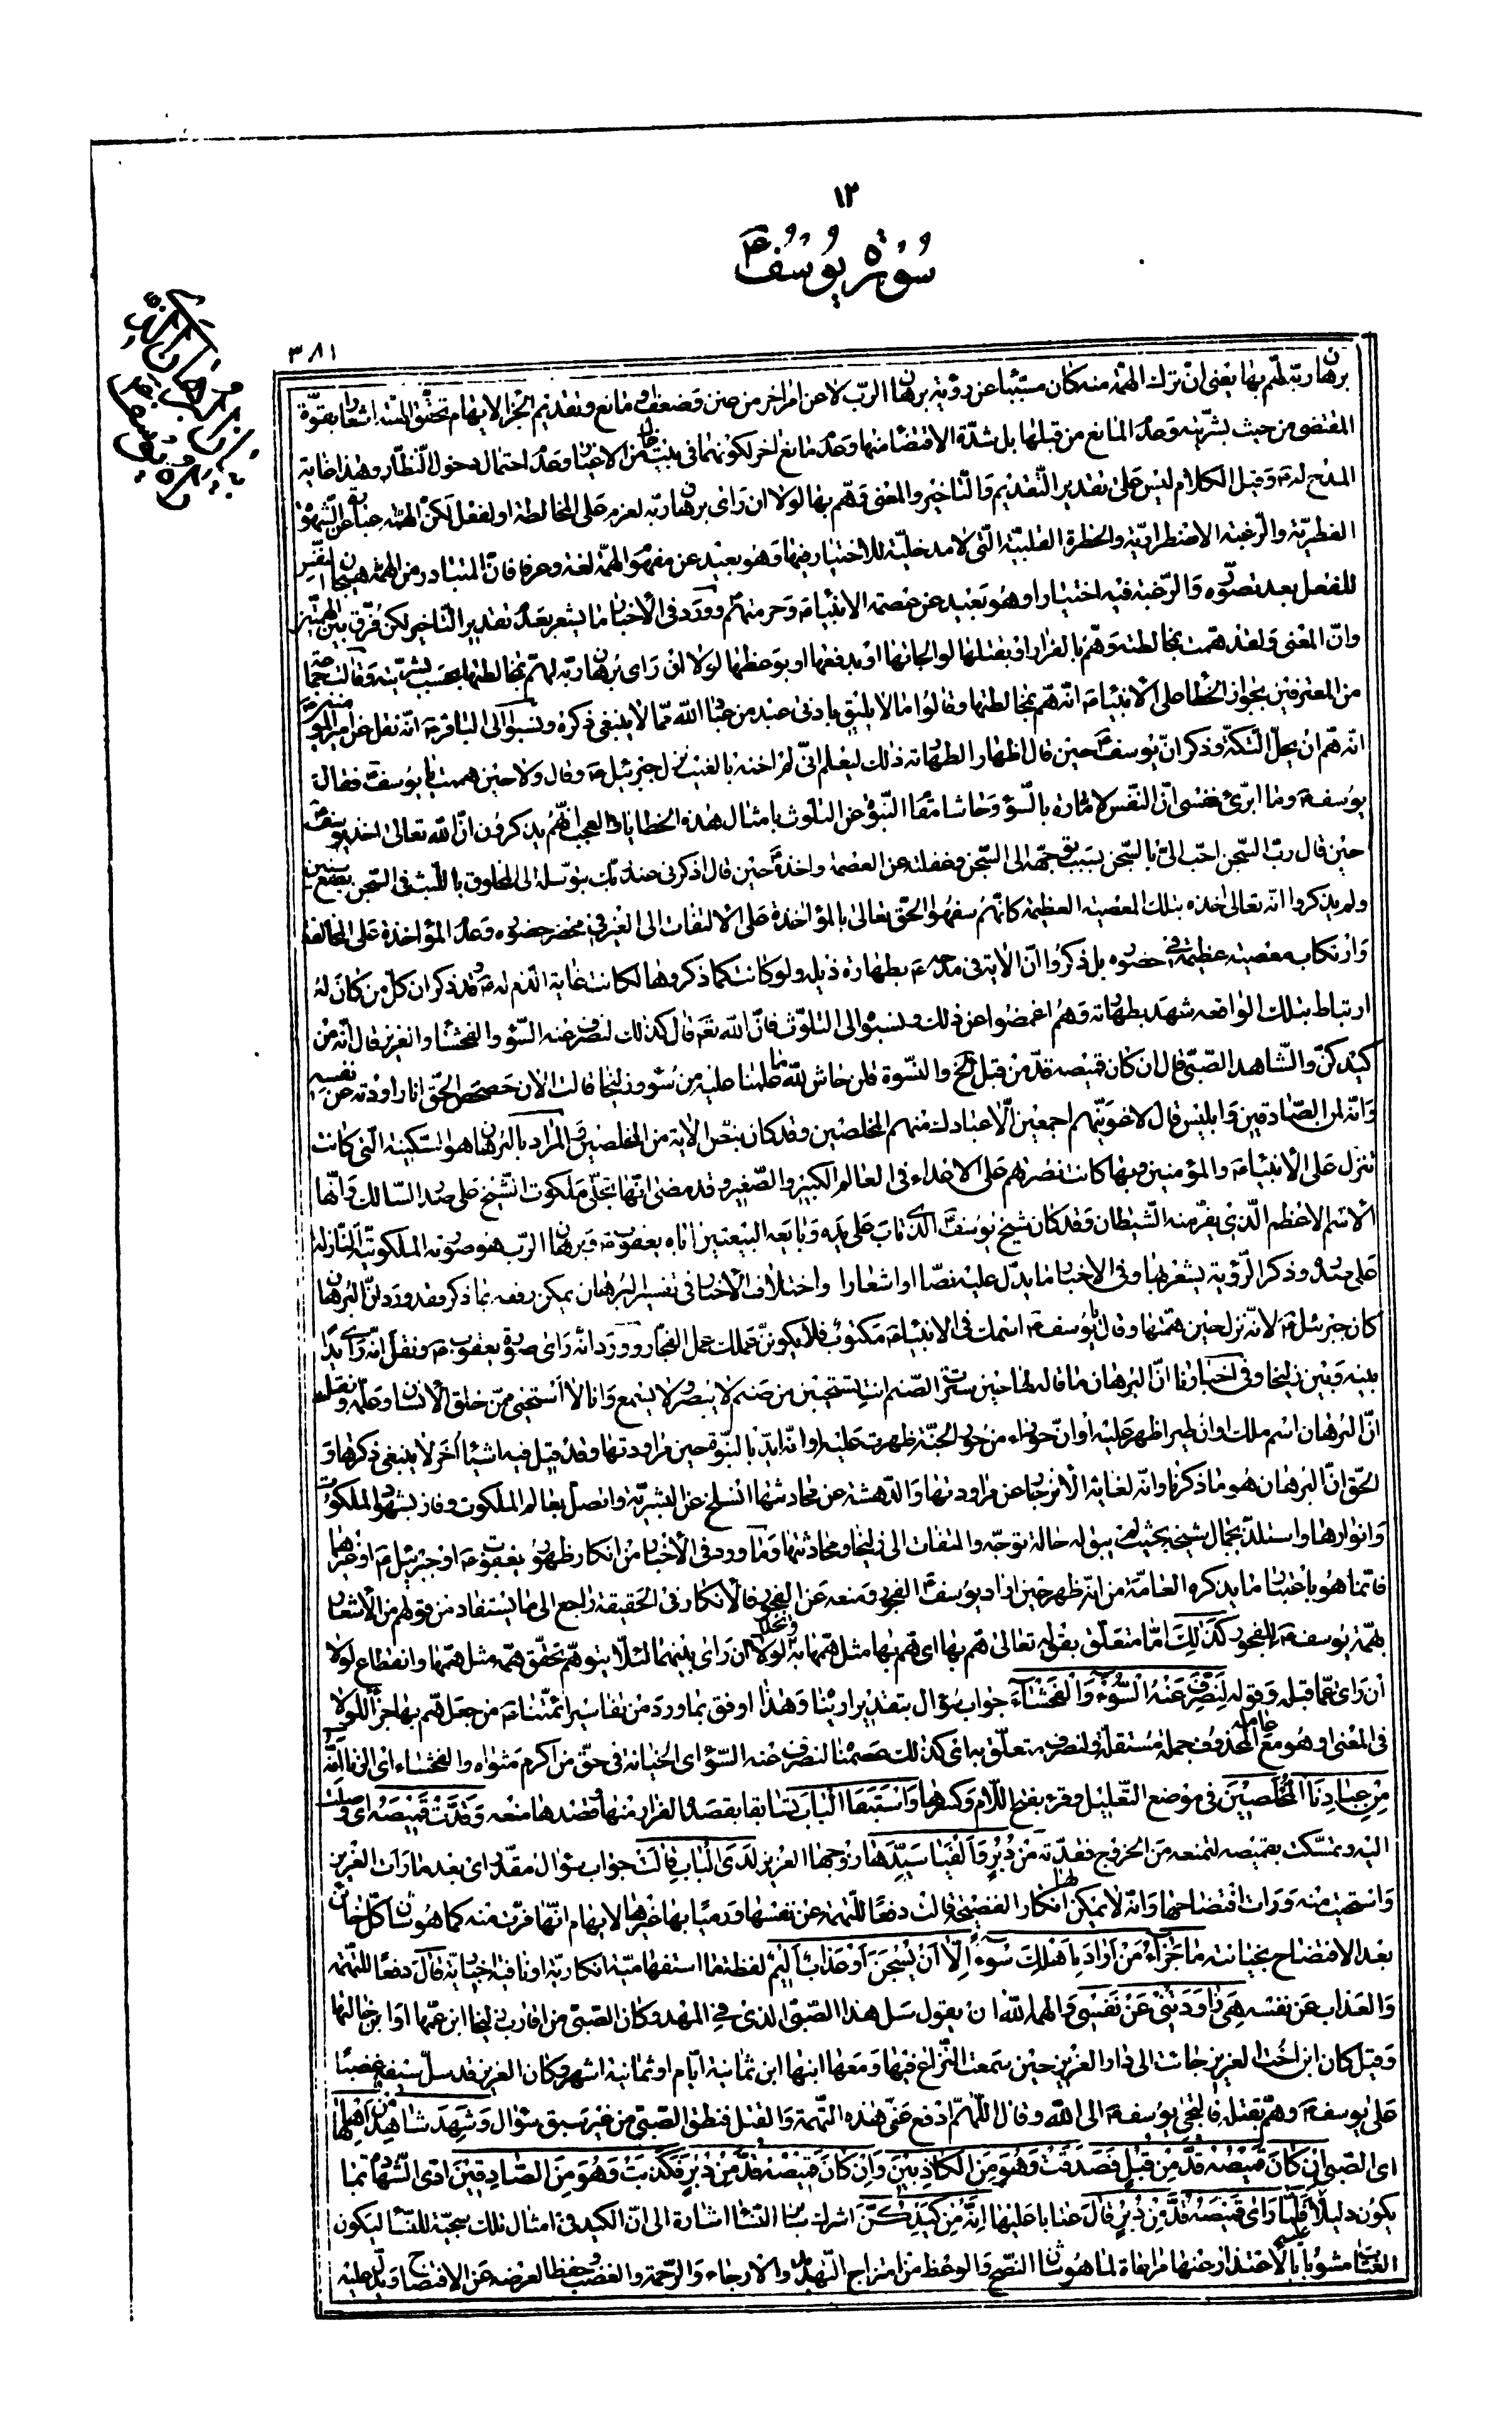 ١٢
سورة يوسف ع
٣٨١
برهان ربه لهم بها يعنى ان ترك الهمة منه كان مسببا عن رؤية برهان الرب لا عن امر اخر من عنن وضعف او مانع وتقديم الجزاء لايهام تحقق الهمة اشعارا بقوة
المقتضى من حيث بشريته وعدم المانع من قبلها بل شدة الاقتضاء منها وعدم مانع اخر لكونهما فى بيت خال من الاغيار وعدم احتمال دخول النظار وهذا غاية
المدح له ع وقيل الكلام ليس على تقدير التقديم والتاخير والمعنى وهم بها لولا ان راى برهان ربه لعزم على المخالطة او لفعل لكن الهمة عبارة عن الشهوة
الفطرية والرغبة الاضطرارية والخطرة القلبية التى لا مدخلية للاختيار فيها وهو بعيد عن مفهوم الهمة لغة وعرفا فان المتبادر من الهمة هيجان النفس
للفعل بعد تصوره والرغبة فيه اختيارا وهو بعيد عن عصمة الانبياء ع وحرمتهم وورد فى الاخبار ما يشعر بعدم تقدير التاخير لكن فرق بين الهمتين
وان المعنى ولقد همت بمخالطته وهم بالفرار او بقتلها لو الجاتها او بدفعها او بوعظها لولا ان راى برهان ربه لهم بمخالطتها بحسب بشريته وقالت جماعة
من المعترفين بجواز الخطاء على الانبياء ع انه هم بمخالطتها وقالوا ما لا يليق بادنى عبد من عباد الله مما لا ينبغى ذكره ونسبوا الى الباقر ع انه نقل عن امير المؤمنين ع
انه هم ان يحل التكة وذكر ان يوسف ع حين قال اظهارا لطهارته ذلك ليعلم انى لم اخنه بالغيب نزل جبرئيل ع وقال ولا حين هممت يا يوسف ع فقال
يوسف ع وما ابرئ نفسى ان النفس لامارة بالسوء وحاشا مقام النبوة عن التلوث بامثال هذه الخطايا والعجب انهم يذكرون ان الله تعالى اخذ يوسف ع
حين قال رب السجن احب الى بالسجن بسبب توجهه الى السجن وغفلته عن العصمة واخذه حين قال اذكرنى عند ربك بتوسله الى المخلوق باللبث فى السجن بضع سنين
ولم يذكروا انه تعالى اخذه بتلك المعصية العظيمة كانهم سفهوا الحق تعالى بالمؤاخذة على الالتفات الى الغير فى محضر حضوره وعدم المؤاخذة على المخالفة
وارتكاب معصية عظيمة فى حضوره بل ذكروا ان الاية فى مدحه ع بطهارة ذيله ولو كانت كما ذكروها لكانت غاية الذم له ع وقد ذكر ان كل من كان له
ارتباط بتلك الواقعة شهد بطهارته وهم اغمضوا عن ذلك ونسبوا الى التلوث فان الله تع قال كذلك لنصرف عنه السوء والفحشاء والعزيز قال انه من
كيدكن والشاهد الصبى قال ان كان قميصه قد من قبل الخ والنسوة قلن حاش لله ما علمنا عليه من سوء وزليخا قالت الان حصحص الحق انا راودته عن نفسه
وانه لمن الصادقين وابليس قال لاغوينهم اجمعين الا عبادك منهم المخلصين وقد كان بنص الاية من المخلصين والمراد بالبرهان هو السكينة التى كانت
تنزل على الانبياء ع والمؤمنين وبها كانت نصرتهم على الاعداء فى العالم الكبير والصغير وقد مضى انها تجلى ملكوت الشيخ على صدر السالك وانها
الاسم الاعظم الذى يفر منه الشيطان وقد كان شيخ يوسف ع الذى تاب على يده وبايعه البيعتين اباه يعقوب ع وبرهان الرب هو صورته الملكوتية النازلة
على صدره وذكر الرؤية يشعر بها وفى الاخبار ما يدل عليه نصا او اشعارا واختلاف الاخبار فى تفسير البرهان يمكن رفعه بما ذكر فقد ورد ان البرهان
كان جبرئيل ع لانه نزل حين همتها وقال يا يوسف ع اسمك فى الانبياء ع مكتوب فلا يكونن عملك عمل الفجار وورد انه راى صورة يعقوب ع ونقل انه راى يدا
بينه وبين زليخا وفى اخبارنا ان البرهان ما قاله لها حين سترت الصنم انت تستحيين من صنم لا يبصر ولا يسمع وانا لا استحيى ممن خلق الانسان وعلمه ونقل
ان البرهان اسم ملك او ان طيرا ظهر عليه او ان حوراء من حور الجنة ظهرت عليه او انه ايد بالنبوة حين مراودتها وقد قيل فيه اشياء اخر لا ينبغى ذكرها و
الحق ان البرهان هو ما ذكرنا وانه لغاية الانزجار عن مراودتها والدهشة عن محادثتها انسلخ عن البشرية واتصل بعالم الملكوت وفاز بشهود الملكوت
وانوارها واستلذ بجمال شيخه بحيث لم يبق له حالة توجه والتفات الى زليخا ومحادثتها وما ورد فى الاخبار من انكار ظهور يعقوب ع او جبرئيل ع او غيرهما
فانما هو باعتبار ما يذكره العامة من انه ظهر حين اراد يوسف ع الفجور ومنعه عن الفجور فالانكار فى الحقيقة راجع الى ما يستفاد من قولهم من الاشعار
بهمة يوسف ع للفجور كذلك اما متعلق بقوله تعالى هم بها اى هم بها مثل همها به لولا ان راى بينهما لئلا يتوهم تحقق همه مثل همتها وانقطاع لولا
ان راى عما قبله وقوله لنصرف عنه السوء والفحشاء جواب سؤال بتقدير اريناه وهذا اوفق بما ورد من تفاسير ائمتنا ع من جعل هم بها جزاء للولا
فى المعنى او هو مع عامله المحذوف جملة مستقلة ولنصرف متعلق به اى كذلك عصمناه لنصرف عنه السوء اى الخيانة فى حق من اكرم مثواه والفحشاء اى الزنا انه
من عبادنا المخلصين فى موضع التعليل وقرئ بفتح اللام وكسرها واستبقا الباب تسابقا بقصد الفرار منها وقصدها منعه وقدت قميصه اى وصلت
اليه وتمسكت بقميصه لتمنعه من الخروج فقدته من دبر والفيا سيدها زوجها العزيز لدى الباب قالت جواب سؤال مقدر اى بعد ما رات العزيز
واستحيت منه ورات افتضاحها وانه لا يمكن لها انكار الفضيحة قالت دفعا للتهمة عن نفسها ورميا بها غيرها لايهام انها فرت منه كما هو شان كل خائن
بعد الافتضاح بخيانته ما جزاء من اراد باهلك سوءا الا ان يسجن او عذاب اليم لفظة ما استفهامية انكارية او نافية خبرية قال دفعا للتهمة
والعذاب عن نفسه هى راودتنى عن نفسى والهمه الله ان يقول سل هذا الصبى الذى فى المهد وكان الصبى من اقارب زليخا ابن عمها او ابن خالتها
وقيل كان ابن اخت العزيز جاءت الى دار العزيز حين سمعت النزاع فيها ومعها ابنها ابن ثمانية ايام او ثمانية اشهر وكان العزيز قد سل سيفه غضبا
على يوسف ع وهم بقتله فالتجى يوسف ع الى الله وقال اللهم ادفع عنى هذه التهمة والقتل فنطق الصبى من غير سبق سؤال وشهد شاهد من اهلها
اى الصبى ان كان قميصه قد من قبل فصدقت وهو من الكاذبين وان كان قميصه قد من دبر فكذبت وهو من الصادقين ادى الشهادة بما
يكون دليلا فلما راى قميصه قد من دبر قال عتابا عليها انه من كيدكن اشرك سائر النساء اشارة الى ان الكيد فى امثال تلك سجية للنساء ليكون
العتاب مشوبا بالاعتذار عنها مراعاة لما هو شان النصح والوعظ من امتزاج التهديد والارجاء والرحمة والغضب وحفظا لعرضه عن الافتضاح ويدل عليه